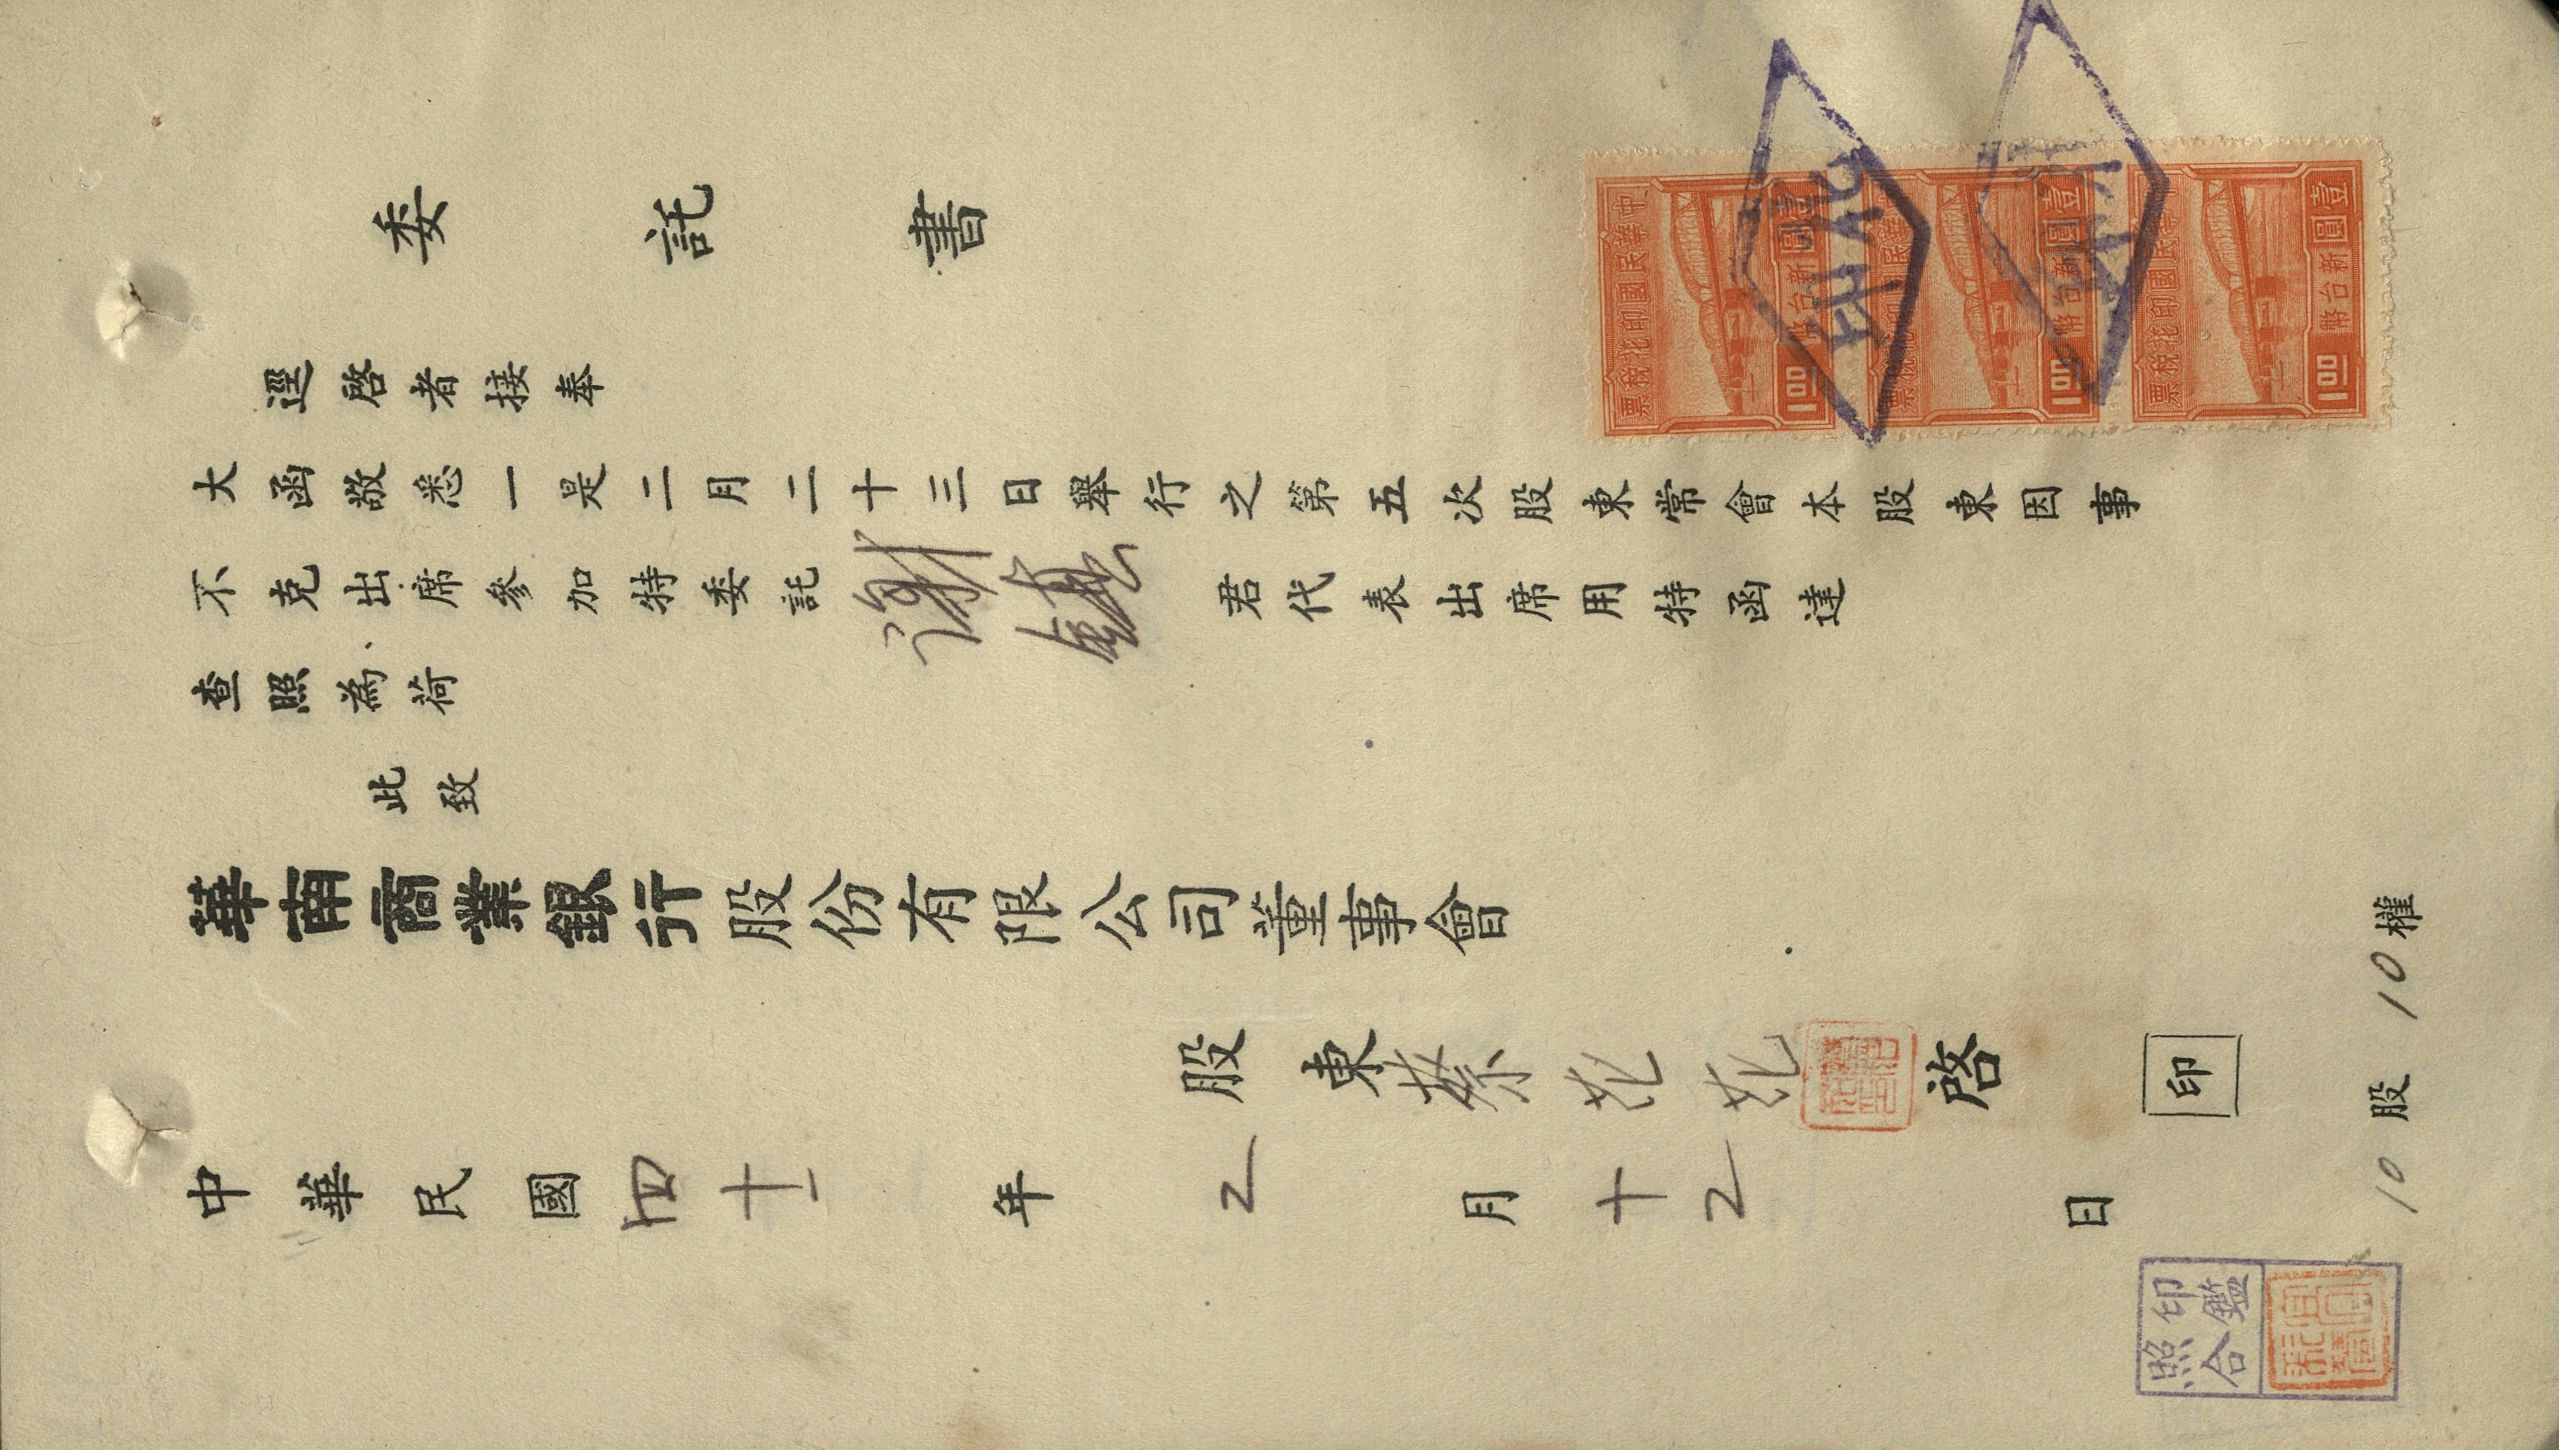 委託書
逕啓者接奉
大函敬悉一是二月二十三日舉行之第五次股東常會本股東因事
不克出席參加特委託謝 君代表出席用特函達
查照為荷
此致
華南商業銀行股份有限公司董事會
股東蔡花花啓
印
中華民國四十一年2月十2日
10股10權
中華民國印花稅票
壹圓新台幣
1.00
中華民國印花稅票
壹圓新台幣
1.00
中華民國印花稅票
壹圓新台幣
1.00
印鑑
照合